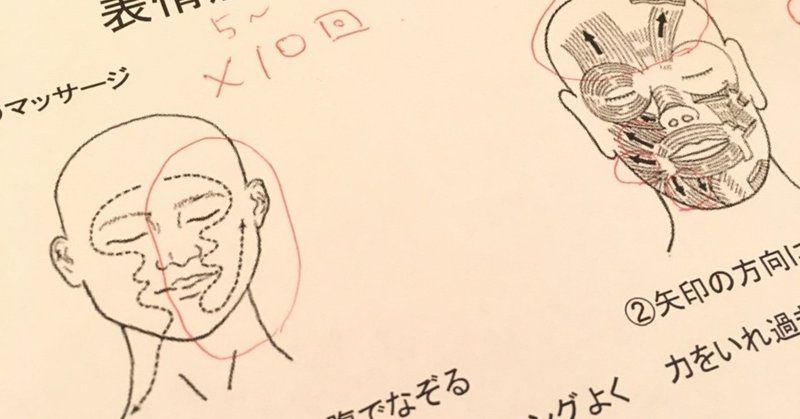 表情
5〜
×10回
マッサージ
②矢印の方向に
腹でなぞる
ングよく 力をいれ過